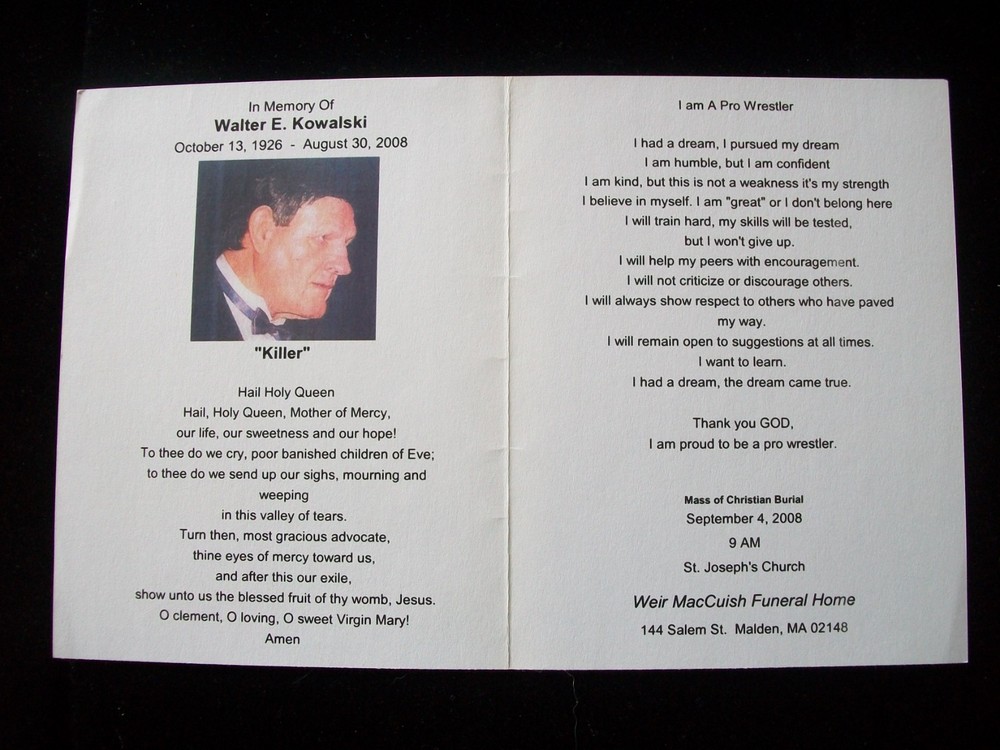 In Memory Of
Walter E. Kowalski
October 13, 1926 - August 30, 2008
"Killer"
Hail Holy Queen
Hail, Holy Queen, Mother of Mercy,
our life, our sweetness and our hope!
To thee do we cry, poor banished children of Eve;
to thee do we send up our sighs, mourning and
weeping
in this valley of tears.
Turn then, most gracious advocate,
thine eyes of mercy toward us,
and after this our exile,
show unto us the blessed fruit of thy womb, Jesus.
O clement, O loving, O sweet Virgin Mary!
Amen
I am A Pro Wrestler
I had a dream, I pursued my dream
I am humble, but I am confident
I am kind, but this is not a weakness it's my strength
I believe in myself. I am "great" or I don't belong here
I will train hard, my skills will be tested,
but I won't give up.
I will help my peers with encouragement.
I will not criticize or discourage others.
I will always show respect to others who have paved
my way.
I will remain open to suggestions at all times.
I want to learn.
I had a dream, the dream came true.
Thank you GOD,
I am proud to be a pro wrestler.
Mass of Christian Burial
September 4, 2008
9 AM
St. Joseph's Church
Weir MacCuish Funeral Home
144 Salem St. Malden, MA 02148